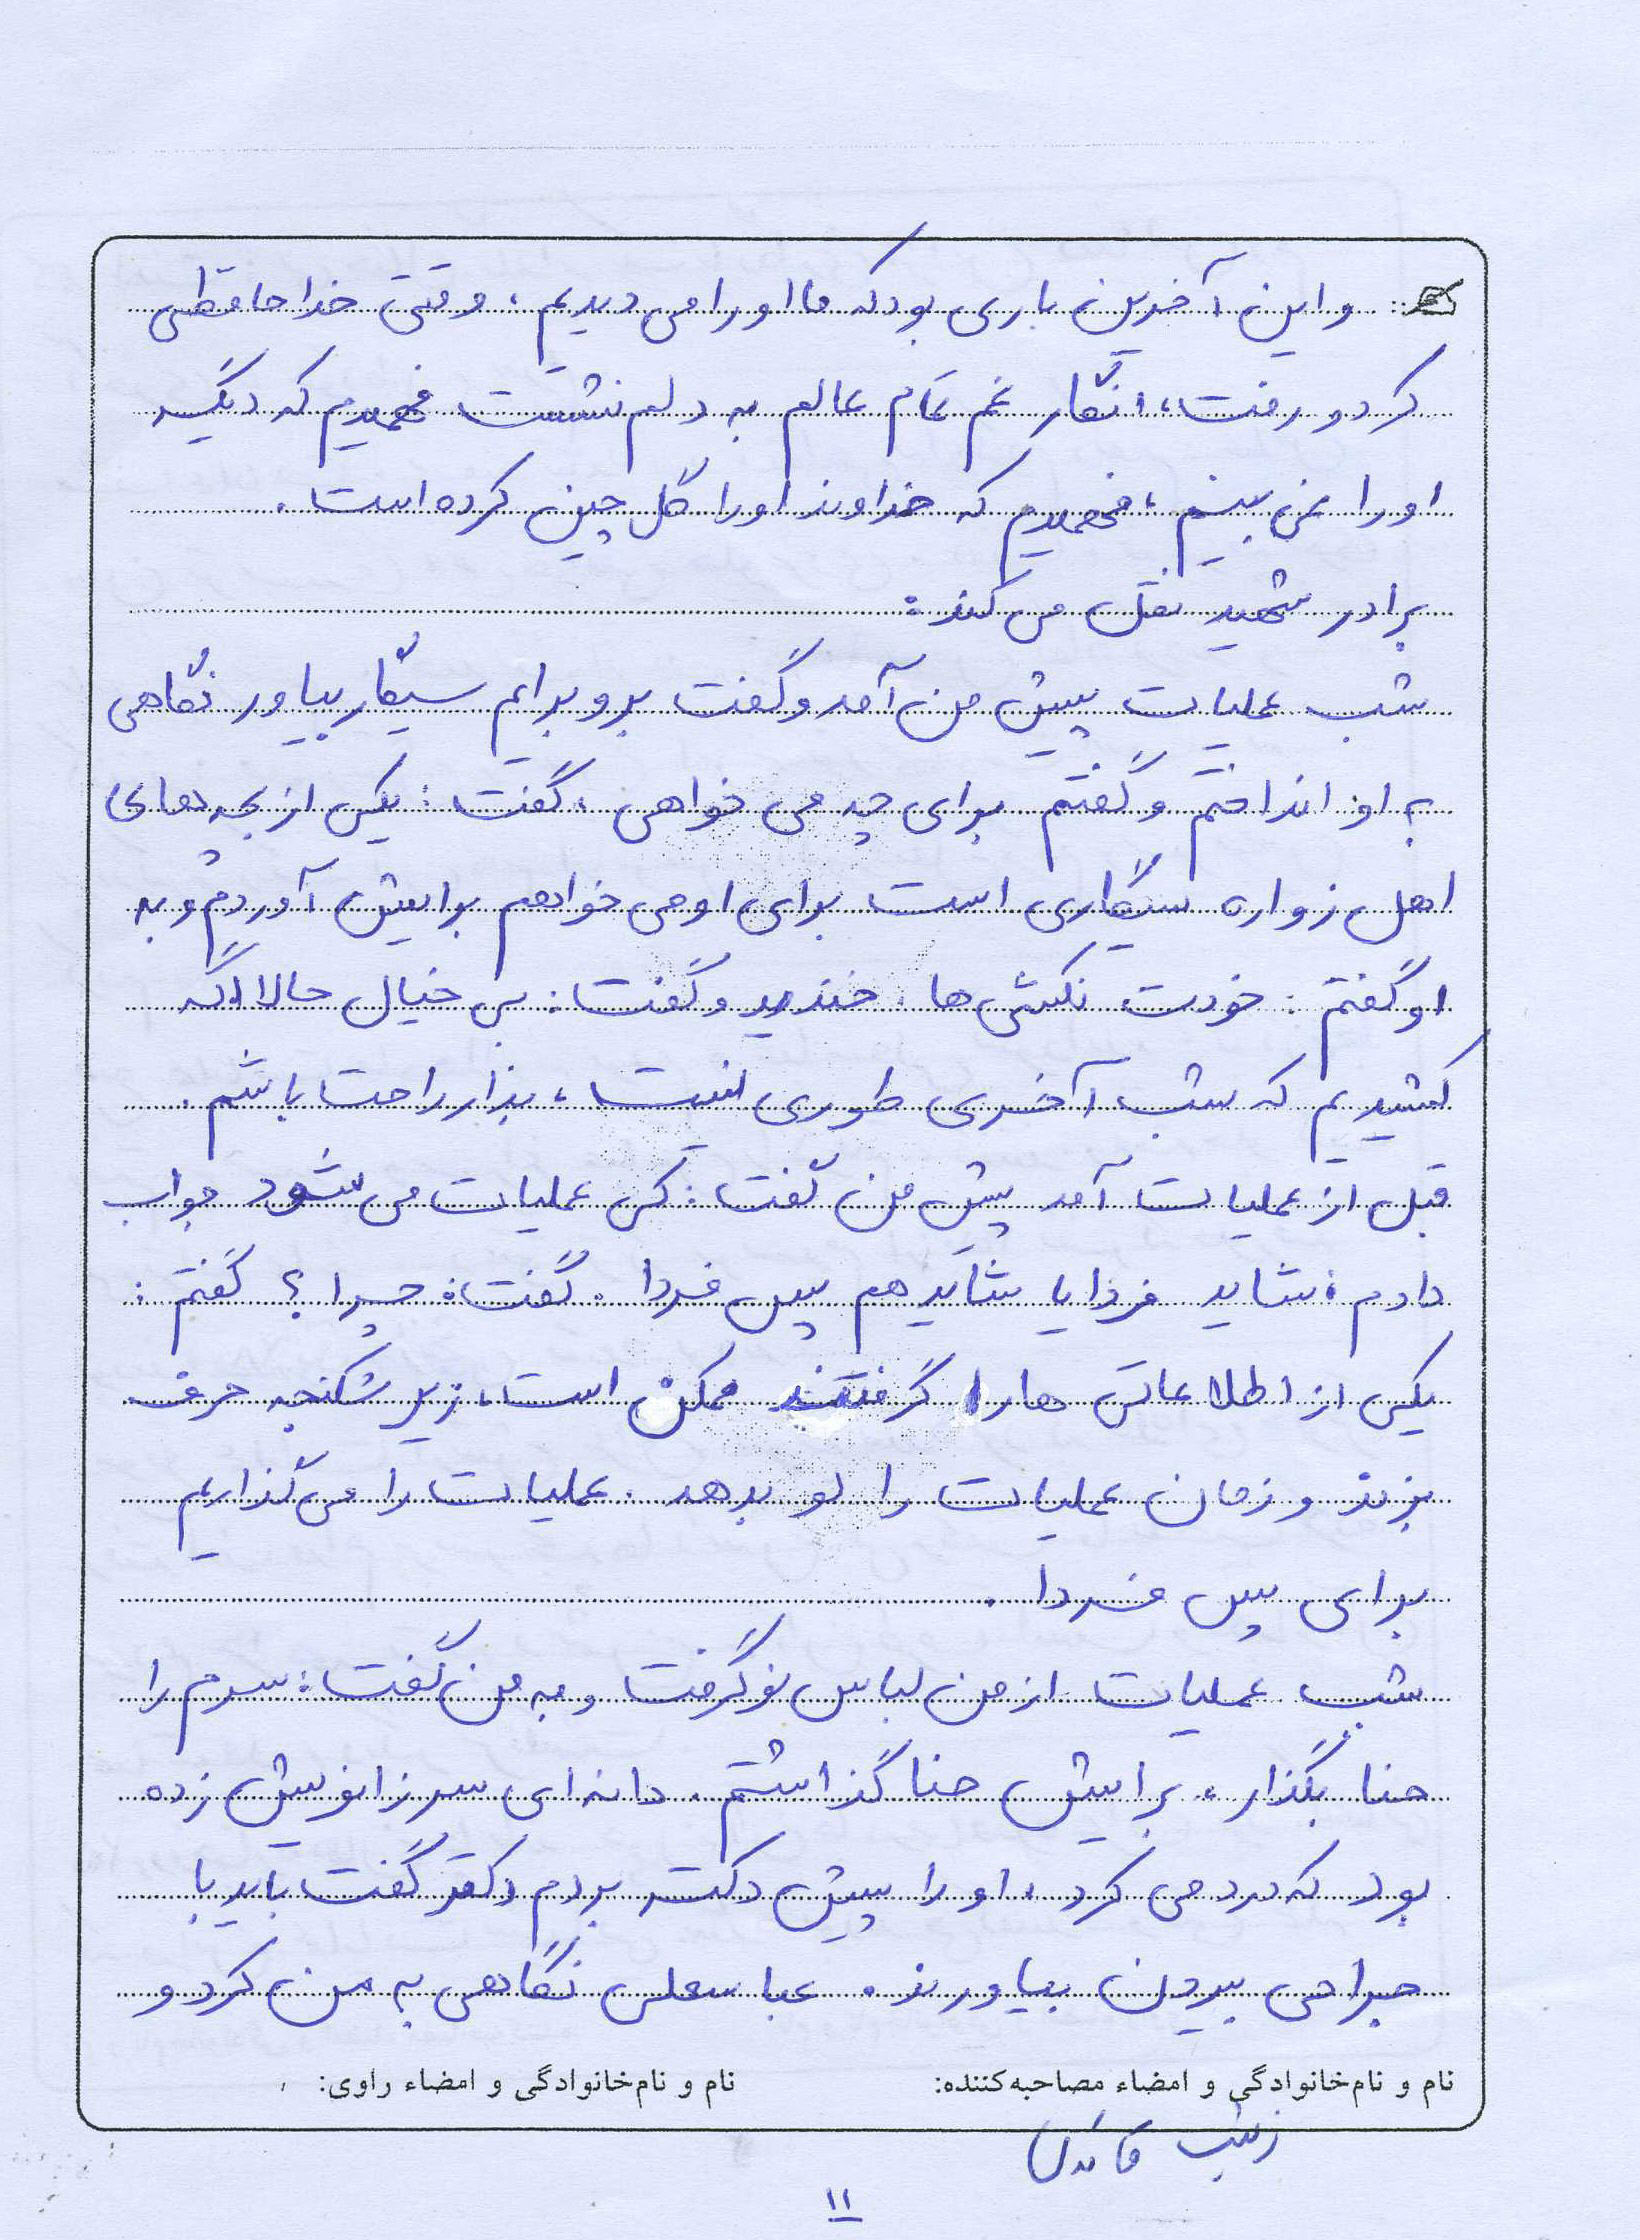 و این آخرین باری بود که ما او را می دیدیم، وقتی خداحافظی
کرد و رفت، انگار غم تمام عالم به دلم نشست فهمیدم که دیگه
او را نمی بینیم، فهمیدم که خداوند او را گل چین کرده است.
برادر شهید نقل می کند:
شب عملیات پیش من آمد و گفت برو برایم سیگار بیاور نگاهی
به او انداختم و گفتم برای چه می خواهی، گفت: یکی از بچه های
اهل زواره سیگاری است برای او می خواهم برایش آوردم و به
او گفتم: خودت نکشی ها. خندید و گفت: بی خیال حالا اگه
کشیدیم که شب آخری طوری نیست، بذار راحت باشم.
قبل از عملیات آمد پیش من گفت: کی عملیات می شود جواب
دادم: شاید فردا یا شاید هم پس فردا. گفت: چرا؟ گفتم:
یکی از اطلاعاتی ها را گرفتند ممکن است، زیر شکنجه حرف
بزند و زمان عملیات را لو بدهد. عملیات را می گذاریم
برای پس فردا.
شب عملیات از من لباس نو گرفت و به من گفت: سرم را
حنا بگذار، برایش حنا گذاشتم. دانه ای سر زانویش زده
بود که درد می کرد، او را پیش دکتر بردم دکتر گفت باید با
جراحی بیرون بیاورند. عباسعلی نگاهی به من کرد و
نام و نام‌خانوادگی و امضاء مصاحبه‌کننده: نام و نام‌خانوادگی و امضاء راوی:
زینب
۱۱